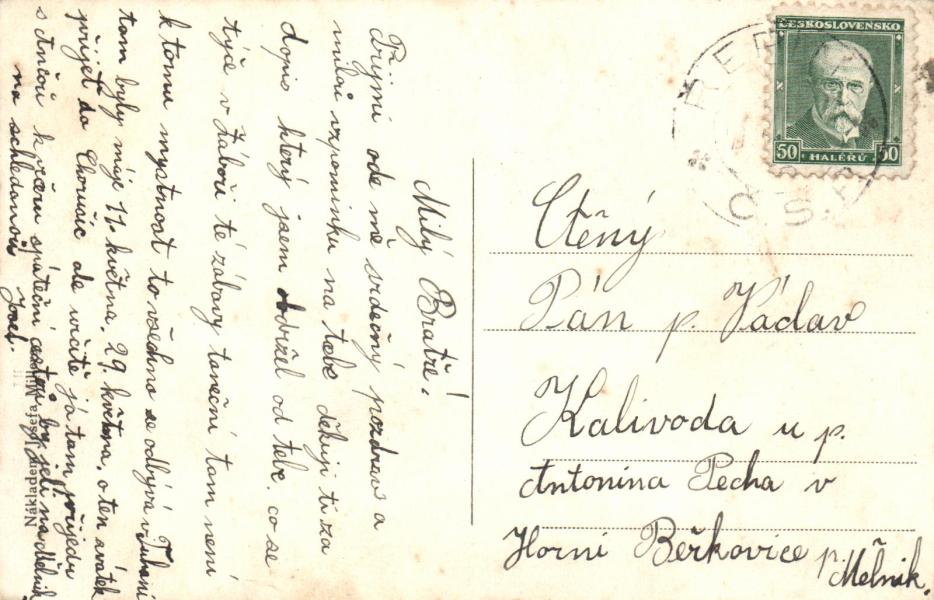 Milý Bratře!
Přijmi ode mě srdečný pozdrav a
milou vzpomínku na tebe děkuji ti za
dopis který jsem obdržel od tebe. co se
týče v Záboři té zábavy taneční tam není
k tomu mystnost to všechno se odbývá v Tuhani
tam byly máje 11. května. 29. května. o ten svátek
přijet do Chorušic ale určitě já tam přijedu
s dnčou k večeru spáteční cestou by jeli na Mělnik
na schledanou Josef.
Nákladem Josefa
ČESKOSLOVENSKO
50 HALÉRŮ 50
ŘEP
ČSR
Ctěný
Pán p. Václav
Kalivoda u p.
Antonína Pecha v
Horní Beřkovice p. Mělnik.